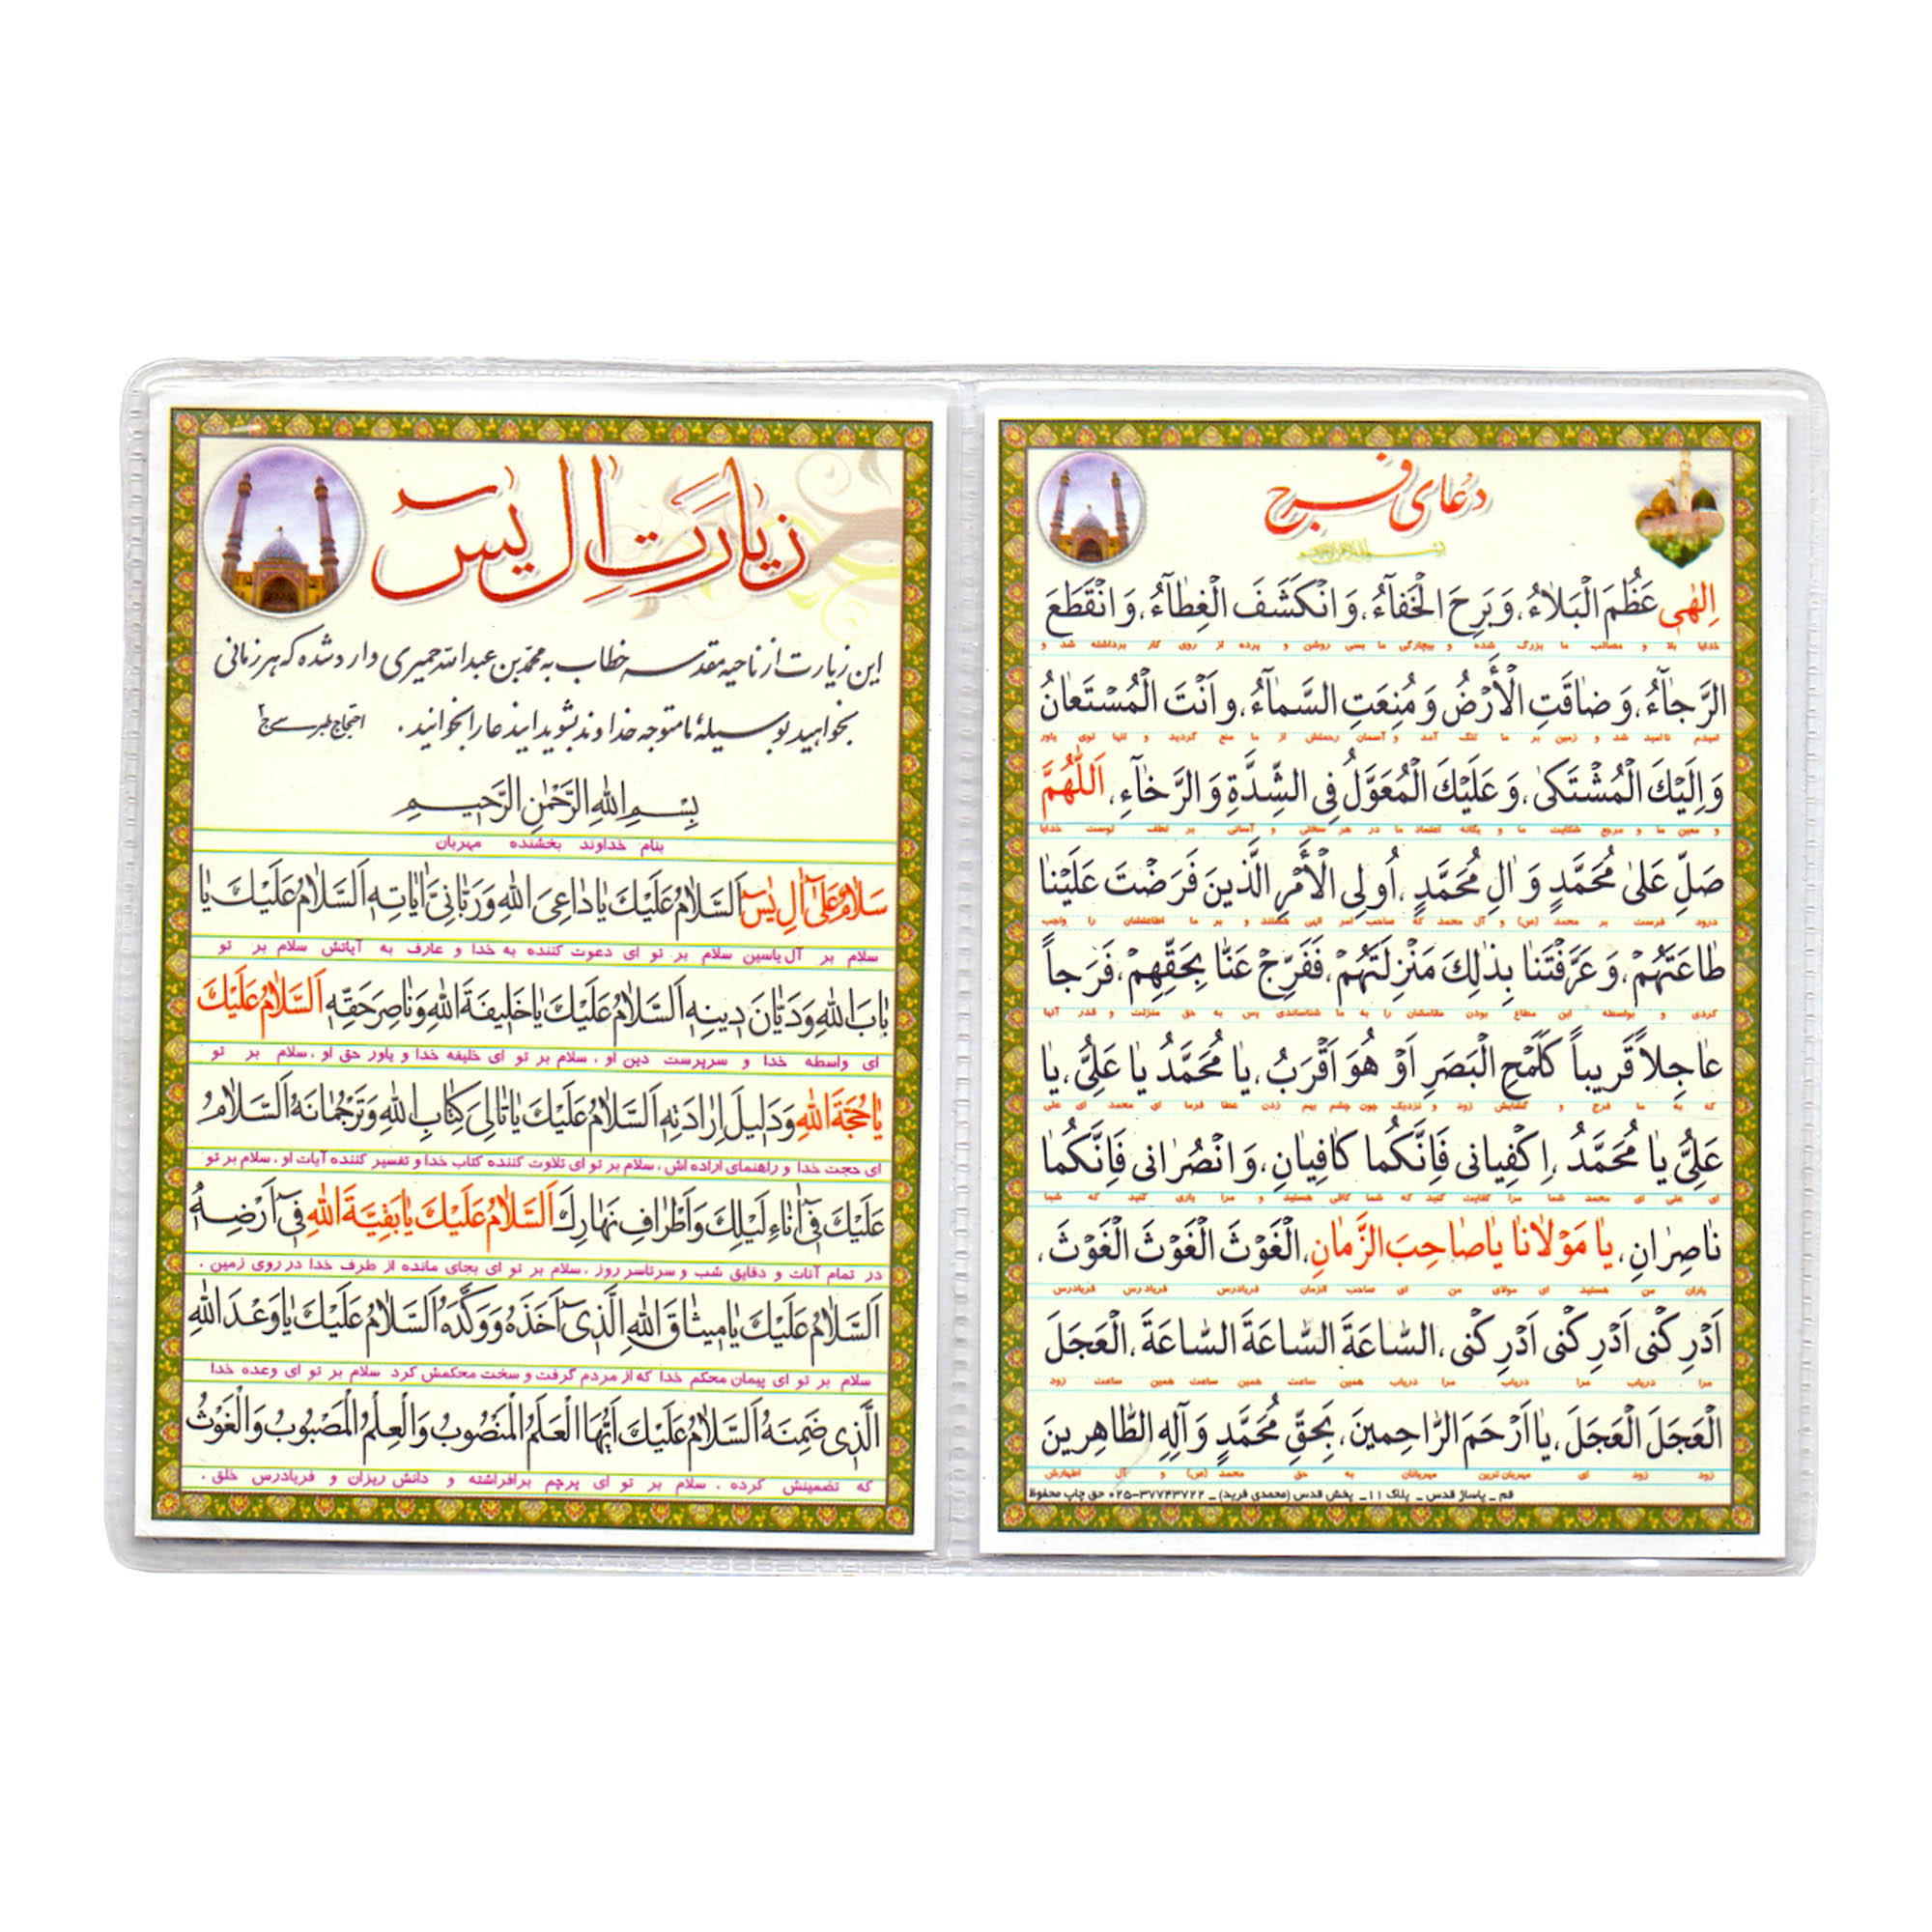 دعای فرج
اِلٰهی عَظُمَ الْبَلاءُ، وَ بَرِحَ الْخَفآءُ، وَ انْكَشَفَ الْغِطآءُ، وَ انْقَطَعَ
خدایا بلا و مصائب ما بزرگ شده و بیچارگی ما بسی روشن و پرده از روی کار برداشته شد و
الرَّجآءُ، وَ ضاقَتِ الْأَرْضُ وَ مُنِعَتِ السَّمآءُ، وَ اَنْتَ الْمُسْتَعانُ
امیدم ناامید شد و زمین بر ما تنگ آمد و آسمان رحمتش از ما منع گردید و تنها توی یاور
وَ اِلَيْكَ الْمُشْتَكىٰ، وَ عَلَيْكَ الْمُعَوَّلُ فِي الشِّدَّةِ وَ الرَّخآءِ، اَللّٰهُمَّ
و معین ما و مرجع شکایت ما و یگانه اعتماد ما در هر سختی و آسانی بر لطف توست خدایا
صَلِّ عَلىٰ مُحَمَّدٍ وَ اٰلِ مُحَمَّدٍ، اُولِي الْأَمْرِ الَّذينَ فَرَضْتَ عَلَيْنا
درود فرست بر محمد (ص) و آل محمد که صاحب امر الهی هستند و بر ما اطاعتشان را واجب
طاعَتَهُمْ، وَ عَرَّفْتَنا بِذٰلِكَ مَنْزِلَتَهُمْ، فَفَرِّجْ عَنّا بِحَقِّهِمْ، فَرَجاً
کردی و بواسطه این مطاع بودن مقامشان را به ما شناساندی پس به حق منزلت و قدر آنها
عاجِلاً قَريباً كَلَمْحِ الْبَصَرِ اَوْ هُوَ اَقْرَبُ، يا مُحَمَّدُ يا عَلِيُّ، يا
که به ما فرج و گشایش زود و نزدیک چون چشم بهم زدن عطا فرما ای محمد ای علی
عَلِيُّ يا مُحَمَّدُ، اِكْفِياني فَاِنَّكُما كافِيانِ، وَ انْصُراني فَاِنَّكُما
ای علی ای محمد شما مرا کفایت کنید که شما کافی هستید و مرا یاری کنید که شما
ناصِرانِ، يا مَوْلانا يا صاحِبَ الزَّمانِ، الْغَوْثَ الْغَوْثَ الْغَوْثَ،
یاران من هستید ای مولای من ای صاحب الزمان فریادرس فریادرس فریادرس
اَدْرِكْني اَدْرِكْني اَدْرِكْني، السّاعَةَ السّاعَةَ السّاعَةَ، الْعَجَلَ
مرا دریاب مرا دریاب مرا دریاب همین ساعت همین ساعت همین ساعت زود
الْعَجَلَ الْعَجَلَ، يا اَرْحَمَ الرّاحِمينَ، بَحَقِّ مُحَمَّدٍ وَ آلِهِ الطّاهِرينَ
زود زود ای مهربان ترین مهربانان به حق محمد (ص) و آل اطهارش
قم ـ پاساژ قدس ـ پلاک ۱۱ ـ پخش قدس (محمدی فرید) ـ ۳۷۷۴۳۷۲۲-۰۲۵ حق چاپ محفوظ
زیارت اٰل یٰس
این زیارت از ناحیه مقدسه خطاب به محمد بن عبدالله حمیری وارد شده که هر زمانی
بخواهید بوسیله ما متوجه خداوند بشوید این دعا را بخوانید. احتجاج طبرسی ج۲
بِسْمِ اللهِ الرَّحْمٰنِ الرَّحيمِ
بنام خداوند بخشنده مهربان
سَلامٌ عَلىٰ آلِ يٰسٓ اَلسَّلامُ عَلَيْكَ يا داعِيَ اللهِ وَ رَبّانِيَّ اٰياتِهِ اَلسَّلامُ عَلَيْكَ يا
سلام بر آل یاسین سلام بر تو ای دعوت کننده به خدا و عارف به آیاتش سلام بر تو
بابَ اللهِ وَ دَيّانَ دينِهِ اَلسَّلامُ عَلَيْكَ يا خَليفَةَ اللهِ وَ ناصِرَ حَقِّهِ اَلسَّلامُ عَلَيْكَ
ای واسطه خدا و سرپرست دین او ، سلام بر تو ای خلیفه خدا و یاور حق او ، سلام بر تو
يا حُجَّةَ اللهِ وَ دَليلَ اِرادَتِهِ اَلسَّلامُ عَلَيْكَ يا تالِيَ كِتابِ اللهِ وَ تَرْجُمانَهُ اَلسَّلامُ
ای حجت خدا و راهنمای اراده اش ، سلام بر تو ای تلاوت کننده کتاب خدا و تفسیر کننده آیات او ، سلام بر تو
عَلَيْكَ فيٓ اٰناءِ لَيْلِكَ وَ اَطْرافِ نَهارِكَ اَلسَّلامُ عَلَيْكَ يا بَقِيَّةَ اللهِ فيٓ اَرْضِهِ
در تمام آنات و دقایق شب و سرتاسر روز ، سلام بر تو ای بجای مانده از طرف خدا در روی زمین ،
اَلسَّلامُ عَلَيْكَ يا ميثاقَ اللهِ الَّذيٓ اَخَذَهُ وَ وَكَّدَهُ اَلسَّلامُ عَلَيْكَ يا وَعْدَ اللهِ
سلام بر تو ای پیمان محکم خدا که از مردم گرفت و سخت محکمش کرد سلام بر تو ای وعده خدا
الَّذي ضَمِنَهُ اَلسَّلامُ عَلَيْكَ اَيُّهَا الْعَلَمُ الْمَنْصُوبُ وَ الْعِلْمُ الْمَصْبُوبُ وَ الْغَوْثُ
که تضمینش کرده ، سلام بر تو ای پرچم برافراشته و دانش ریزان و فریادرس خلق ،